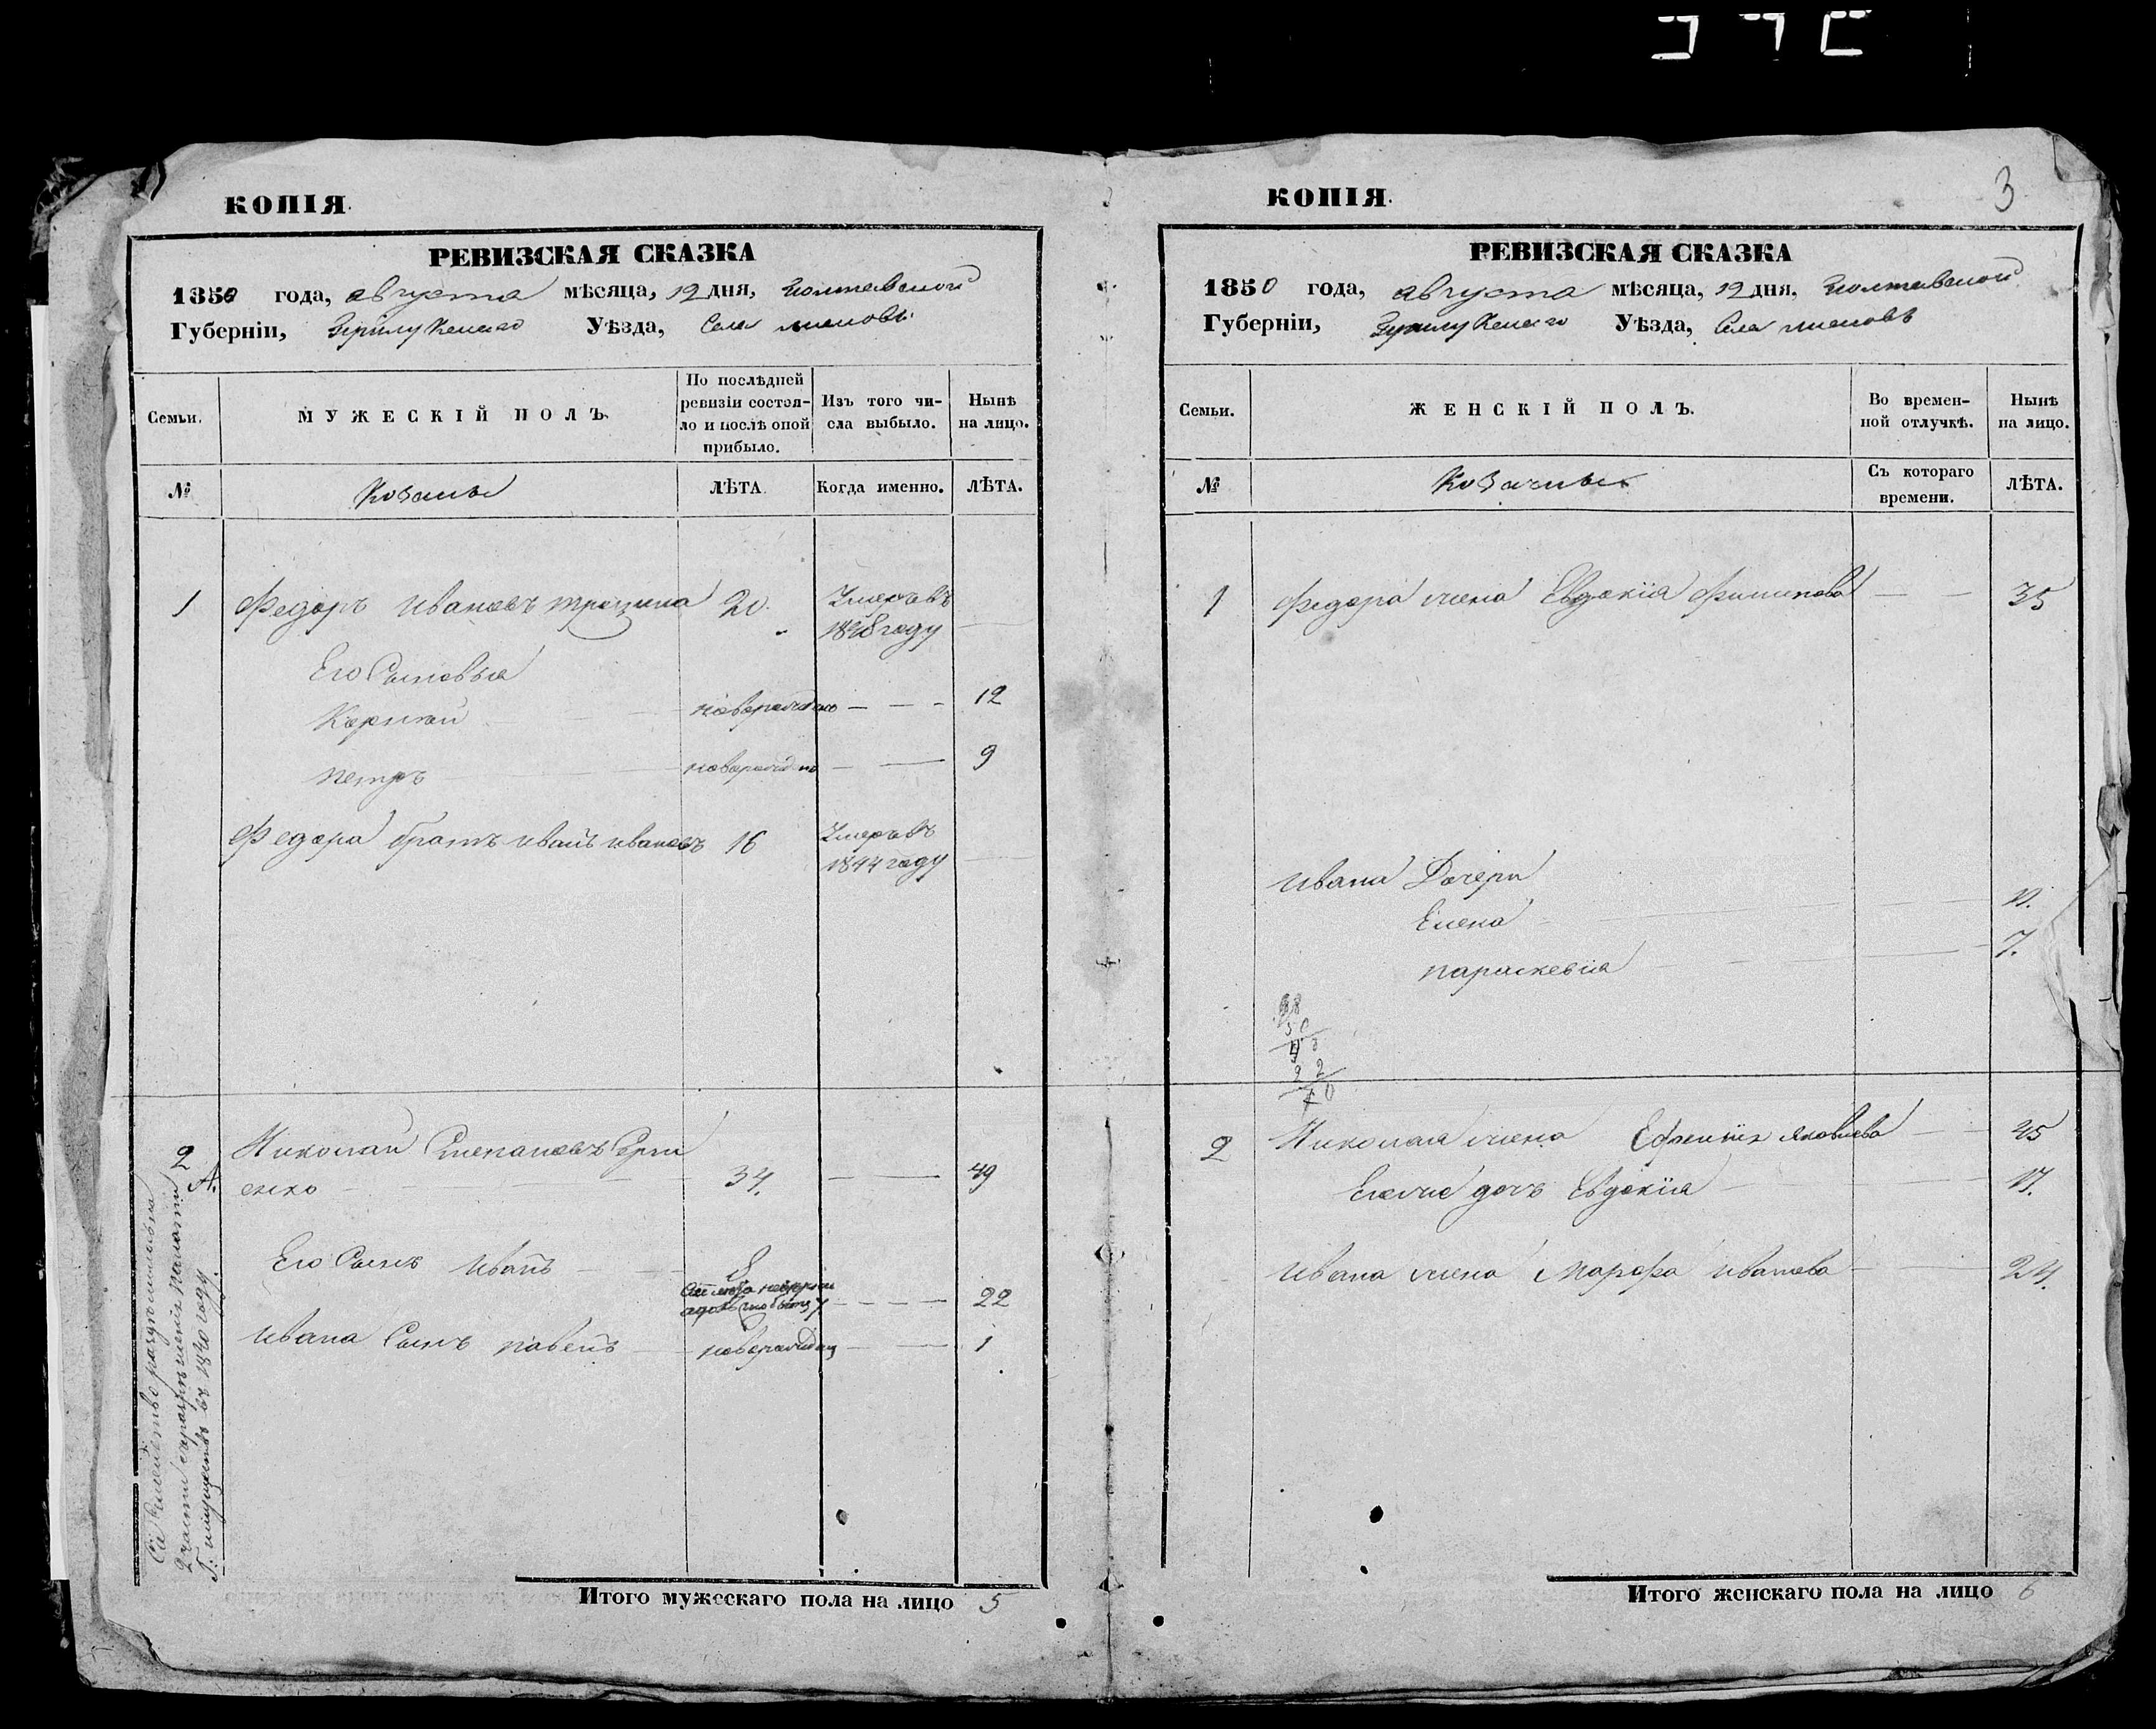 КОПІЯ.
РЕВИЗСКАЯ СКАЗКА
1850 года, августа мѣсяца, 12 дня, Полтавской
Губерніи, Прилукскаго Уѣзда, Села
Семьи.
МУЖЕСКІЙ ПОЛЪ.
По послѣдней ревизіи состоя-
ло и послѣ оной прибыло.
Изъ того чи-
сла выбыло.
Нынѣ
на лицо.
№
Козаки
ЛѢТА.
Когда именно.
ЛѢТА.
1 Федоръ Ивановъ 20. Умеръ въ
1848 году
Его Сыновья
Корнѣй новорожденъ 12
Петръ новорожденъ 9
Федора братъ Иванъ Ивановъ 16 Умеръ въ
1844 году
2 Николай Степановъ
А. енко 34. 49
Его Сынъ Иванъ 8
22
Ивана Сынъ Павелъ новорожденъ 1
Сіе семейство
Г. имуществъ въ 1840 году.
Итого мужескаго пола на лицо 5
3
КОПІЯ.
РЕВИЗСКАЯ СКАЗКА
1850 года, августа мѣсяца, 12 дня, Полтавской
Губерніи, Прилукскаго Уѣзда, Села
Семьи.
ЖЕНСКІЙ ПОЛЪ.
Во времен-
ной отлучкѣ.
Нынѣ
на лицо.
№
Козачки
Съ котораго
времени.
ЛѢТА.
1 Федора жена Евдокія Филипова 35
Ивана Дочери
Елена 11.
Параскевія 7.
2 Николая жена Яковлева 45
Его же дочь Евдокія 17.
Ивана жена Марфа Иванова 24.
Итого женскаго пола на лицо 6